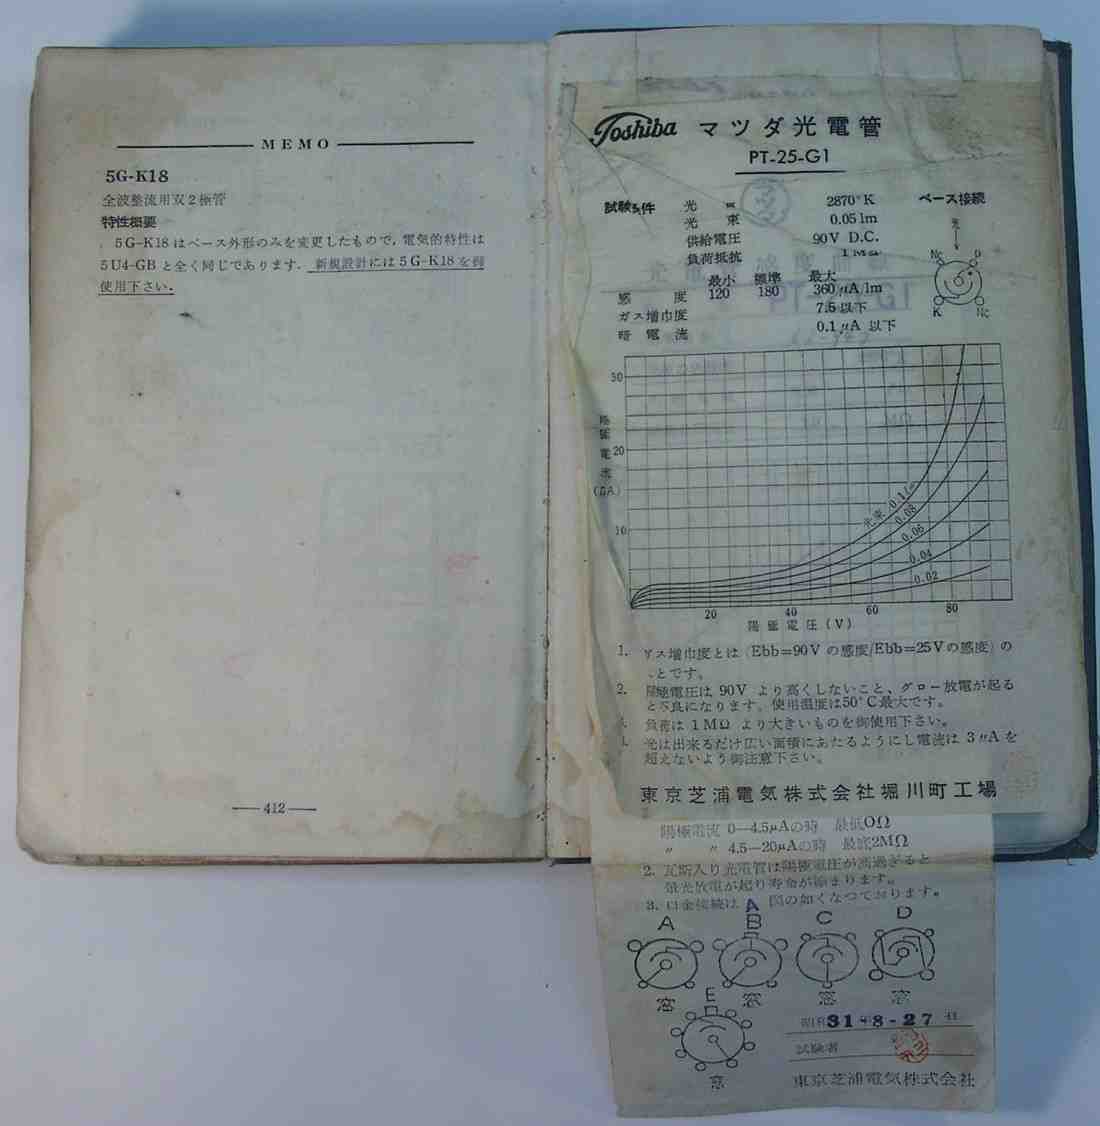 MEMO
5G-K18
全波整流用双2極管
特性概要
5G-K18はベース外形のみを変更したもので,電気的特性は
5U4-GBと全く同じであります. 新規設計には5G-K18を御
使用下さい.
412
Toshiba マツダ光電管
PT-25-G1
試験条件 光 2870°K ベース接続
光 束 0.05 lm
供給電圧 90V D.C.
負荷抵抗 1 MΩ
最小 標準 最大
感 度 120 180 360 μA/lm
ガス増巾度 7.5 以下
暗 電 流 0.1 μA 以下
光
Nc
K Nc
30
20
10
陽極電流
光束 0.1
0.08
0.06
0.04
0.02
20 40 60 80
陽極電圧(V)
1. ガス増巾度とは (Ebb=90V の感度/Ebb=25Vの感度) の
とです。
2. 陽極電圧は 90V より高くしないこと、グロー放電が起る
と不良になります。使用温度は50°C最大です。
負荷は 1MΩ より大きいものを御使用下さい。
光は出来るだけ広い面積にあたるようにし電流は 3μA を
超えないよう御注意下さい。
東京芝浦電気株式会社堀川町工場
陽極電流 0—4.5μAの時 最低0Ω
〃 〃 4.5—20μAの時 最底2MΩ
2. 瓦斯入り光電管は陽極電圧が高過ぎると
放電が起り寿命が縮まります。
3. 口金接続は A 図の如くなつております。
A B C D
窓 窓 窓 窓
E
窓
昭和31年8-27日
試験者
東京芝浦電気株式会社